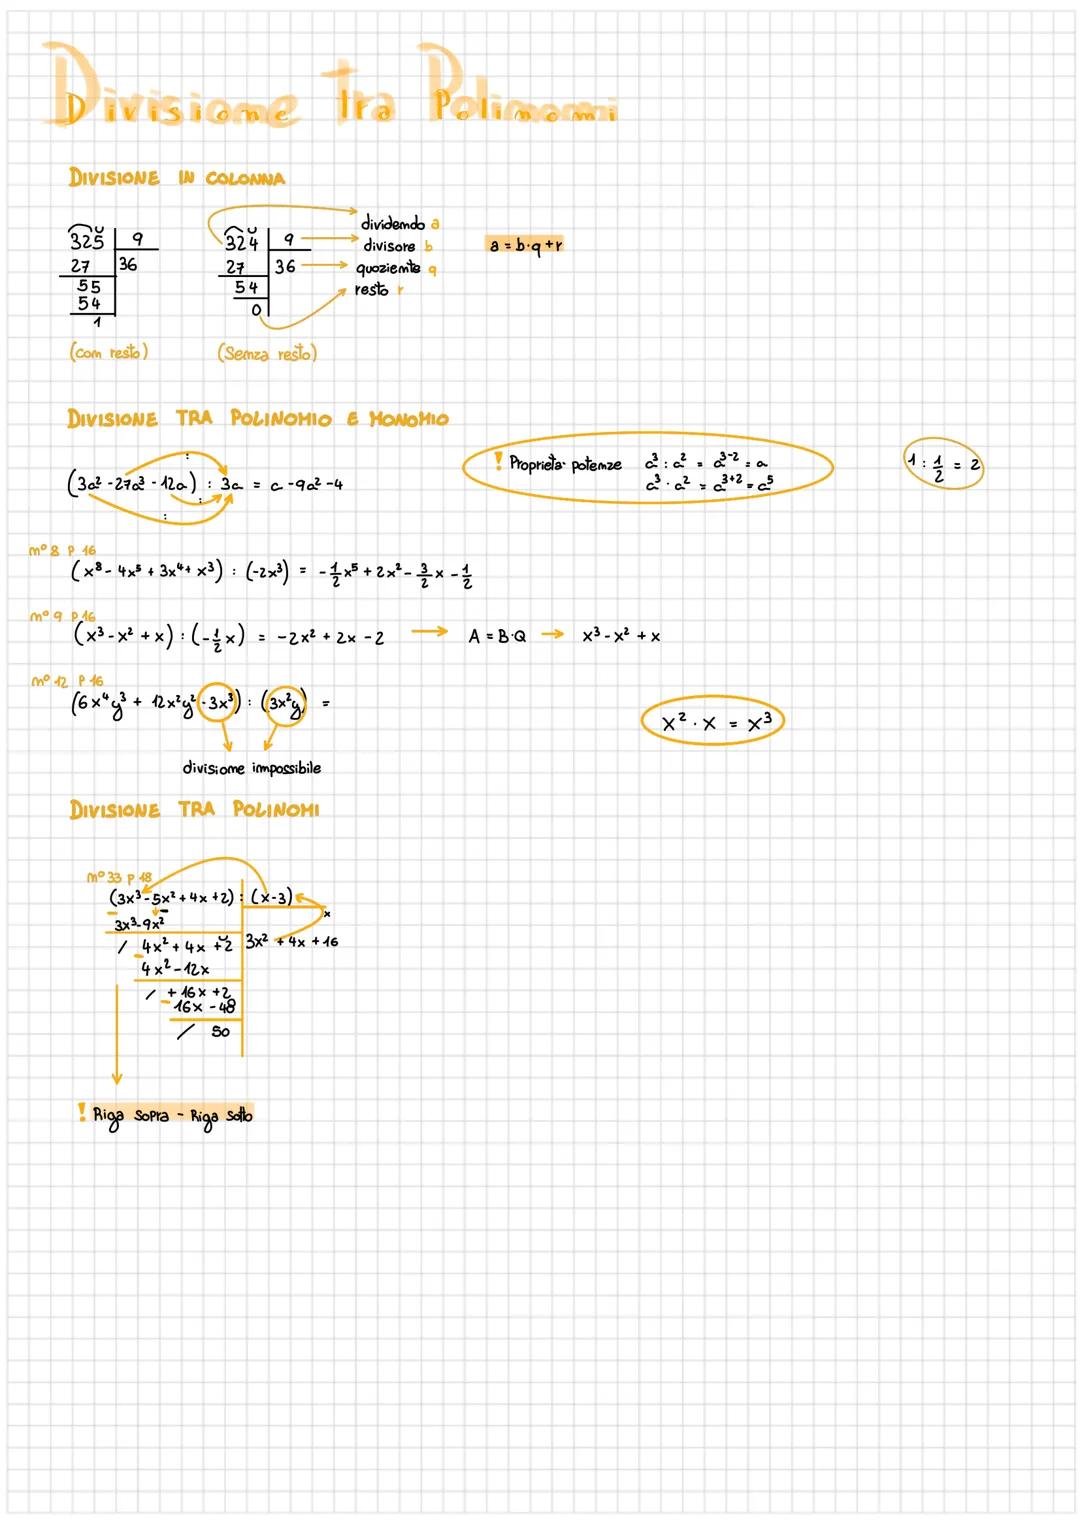 Divisione Tra Polinomi
DIVISIONE IN COLONNA
325 | 9
27 | 36
55
54
1
(con resto)
324 | 9
27 | 36
54
0
(Senza resto)
dividendo a
divisore b
quoziente q
resto r
a = b·q+r
DIVISIONE TRA POLINOMIO E MONOMIO
(3a² - 27a³ - 12a) : 3a = a - 9a² - 4
: : :
! Proprietà potenze a³ : a² = a³⁻² = a
a³ · a² = a³⁺² = a⁵
1 : 1/2 = 2
n° 8 p 16
(x⁸ - 4x⁵ + 3x⁴ + x³) : (-2x³) = -1/2x⁵ + 2x² - 3/2x - 1/2
n° 9 p.16
(x³ - x² + x) : (-1/2x) = -2x² + 2x - 2 → A = B·Q → x³ - x² + x
n° 12 p 16
(6x⁴y³ + 12x²y² - 3x³) : (3x²y) =
divisione impossibile
x² · x = x³
DIVISIONE TRA POLINOMI
n° 33 p 18
(3x³ - 5x² + 4x + 2) : (x - 3)
x
3x³ - 9x²
/ 4x² + 4x + 2 | 3x² + 4x + 16
4x² - 12x
/ + 16x + 2
16x - 48
/ 50
! Riga sopra - Riga sotto